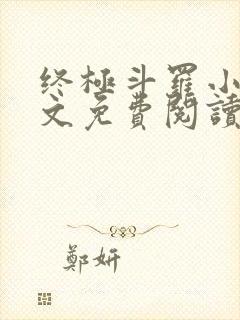 终極斗羅小
文免費閱讀
鄭妍